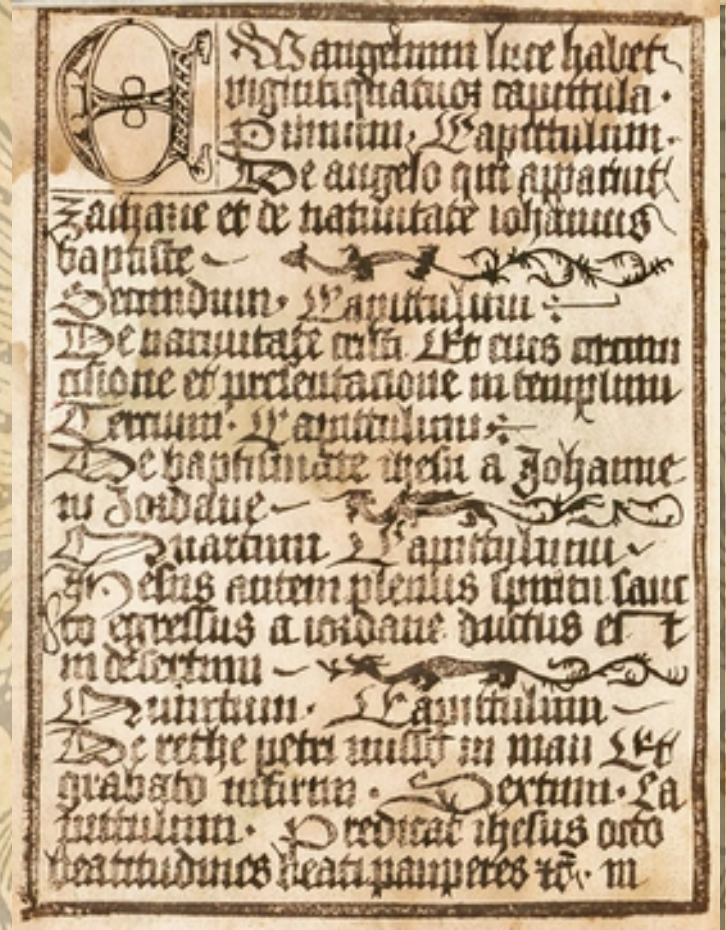 Ewangelium luce habet
vigintiquatuor capittula.
Primum. Capittulum.
De angelo qui apparuit
Zacharie et de nativitate iohannis
baptiste
Secundum. Capittulum
De nativitate cristi. Et eius circum
cisione et presentacione in templum
Tercium. Capittulum
De baptismate ihesu a Johanne
in Jordane
Quartum Capittulum
Ihesus autem plenus spiritu sanc
to egressus a iordane ductus est
in desertum
Quintum. Capittulum
De rethe petri misso in mari Et
grabato infirmi. Sextum. Ca
pittulum. Predicat ihesus octo
beatitudines beati pauperes